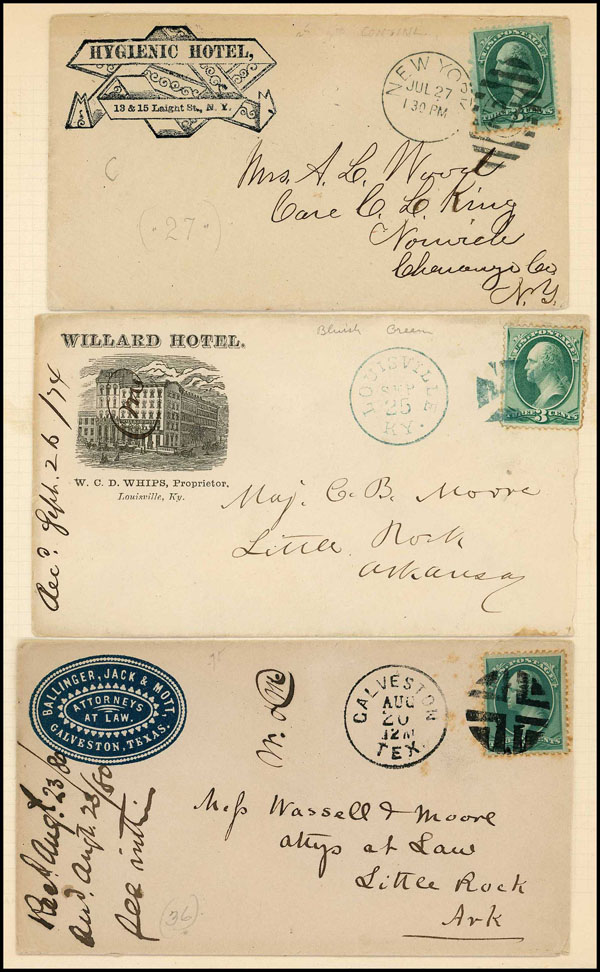 HYGIENIC HOTEL,
13 & 15 Laight St., N. Y.
NEW YORK
JUL 27
1 30 PM
U.S. POSTAGE
THREE 3 CENTS
Mrs. A. L. Wood
Care C. L. King
Norwich
Chenango Co
N.Y.
"27"
WILLARD HOTEL.
W. C. D. WHIPS, Proprietor.
Louisville, Ky.
Bluish Green
LOUISVILLE
SEP
25
KY.
U.S. POSTAGE
THREE 3 CENTS
Rec'd. Sept. 26/74
Maj. C. B. Moore
Little Rock
Arkansas
BALLINGER, JACK & MOTT,
ATTORNEYS
AT LAW.
GALVESTON, TEXAS.
GALVESTON
AUG
20
12M
TEX.
U.S. POSTAGE
W. & M
Recd. Augt. 23/80
and. Augt. 23/80
see within
Mess Wassell & Moore
attys at Law
Little Rock
Ark
(36)